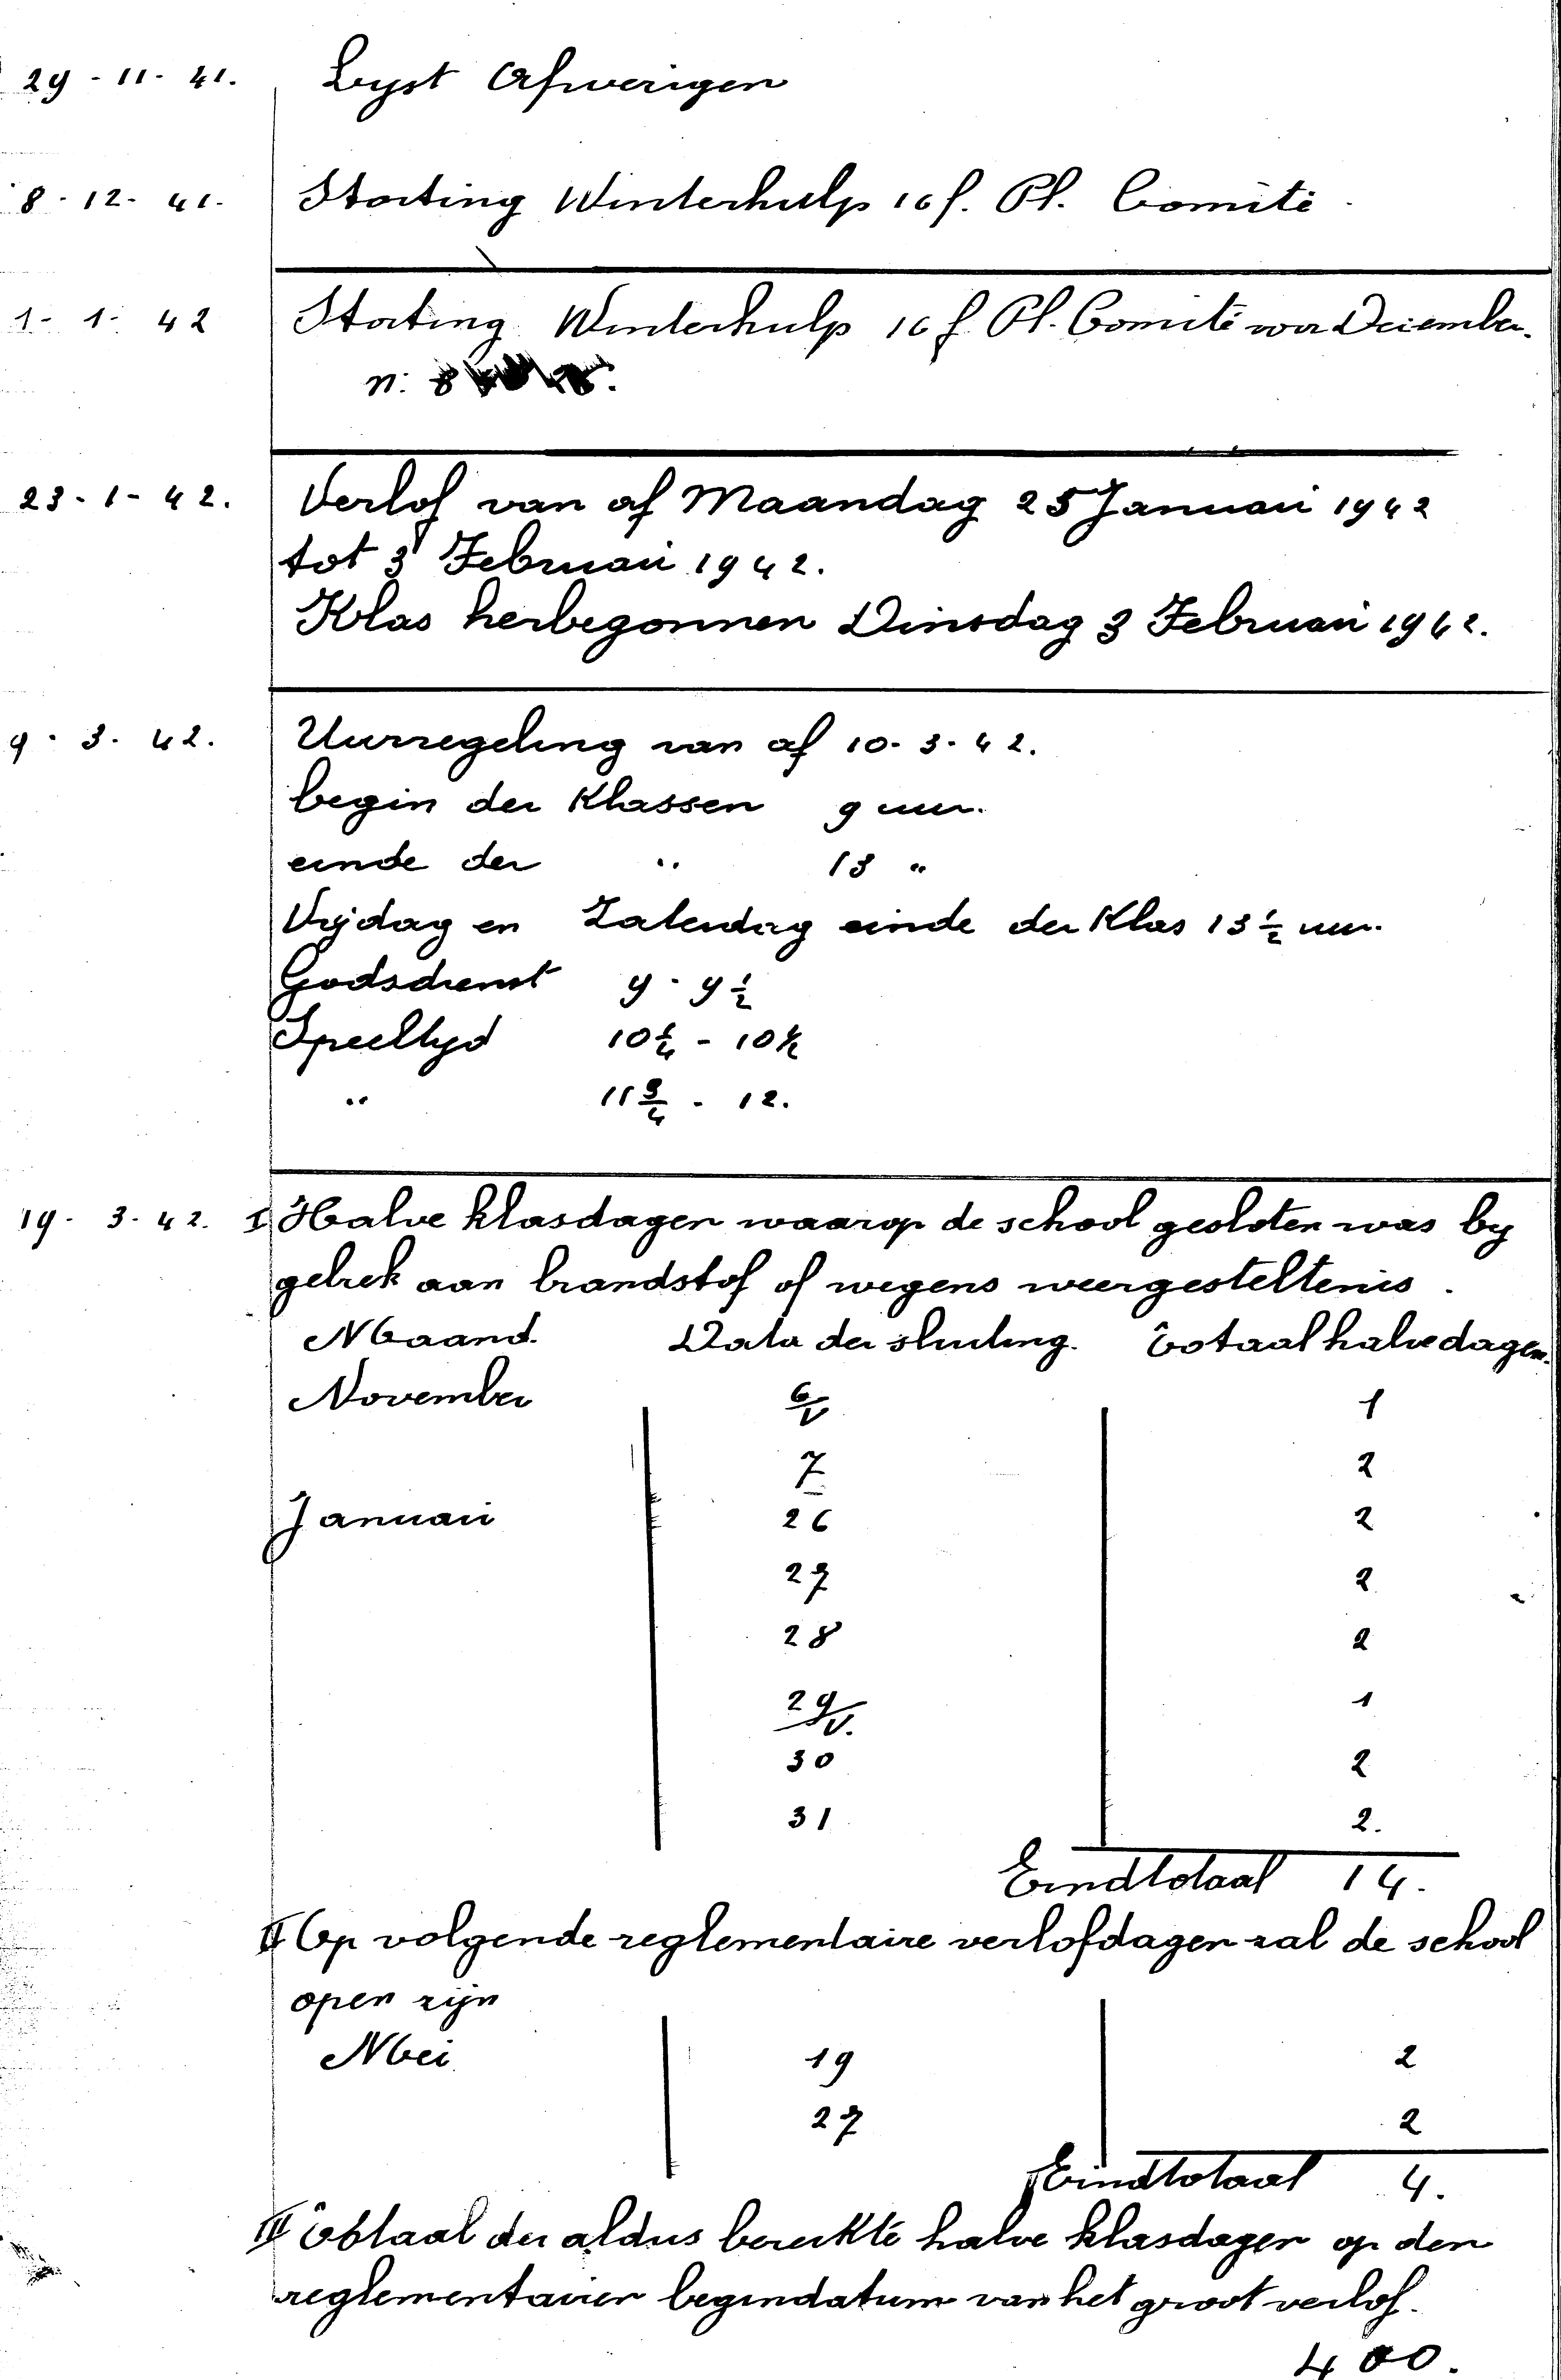 29 - 11 - 41. Lyst Afwezigen
8 - 12 - 41. Storting Winterhulp 16 f. Pl. Comité.
1 - 1 - 42 Storting Winterhulp 16 f. Pl. Comité voor December.
n: 8
23 - 1 - 42. Verlof van af Maandag 25 Januari 1942
tot 3 Februari 1942.
Klas herbegonnen Dinsdag 3 Februari 1942.
9 - 3 - 42. Uurregeling van af 10 - 3 - 42.
begin der Klassen 9 uur.
einde der " 13 "
Vrijdag en Zaterdag einde der Klas 13 ½ uur.
Godsdienst 9 - 9 ½
Speeltyd 10 ¼ - 10 ½
" 11 ¾ - 12.
19 - 3 - 42. I Halve klasdagen waarop de school gesloten was by
gebrek aan brandstof of wegens weergesteltenis.
Maand. Data der sluiting. Totaal halve dagen.
November 6/V 1
7 2
Januari 26 2
27 2
28 2
29/V. 1
30 2
31 2.
Eindtotaal 14.
II Op volgende reglementaire verlofdagen zal de school
open zijn
Mei 19 2
27 2
Eindtotaal 4.
III Totaal der aldus bereikte halve klasdagen op den
reglementairen begindatum van het groot verlof.
400.